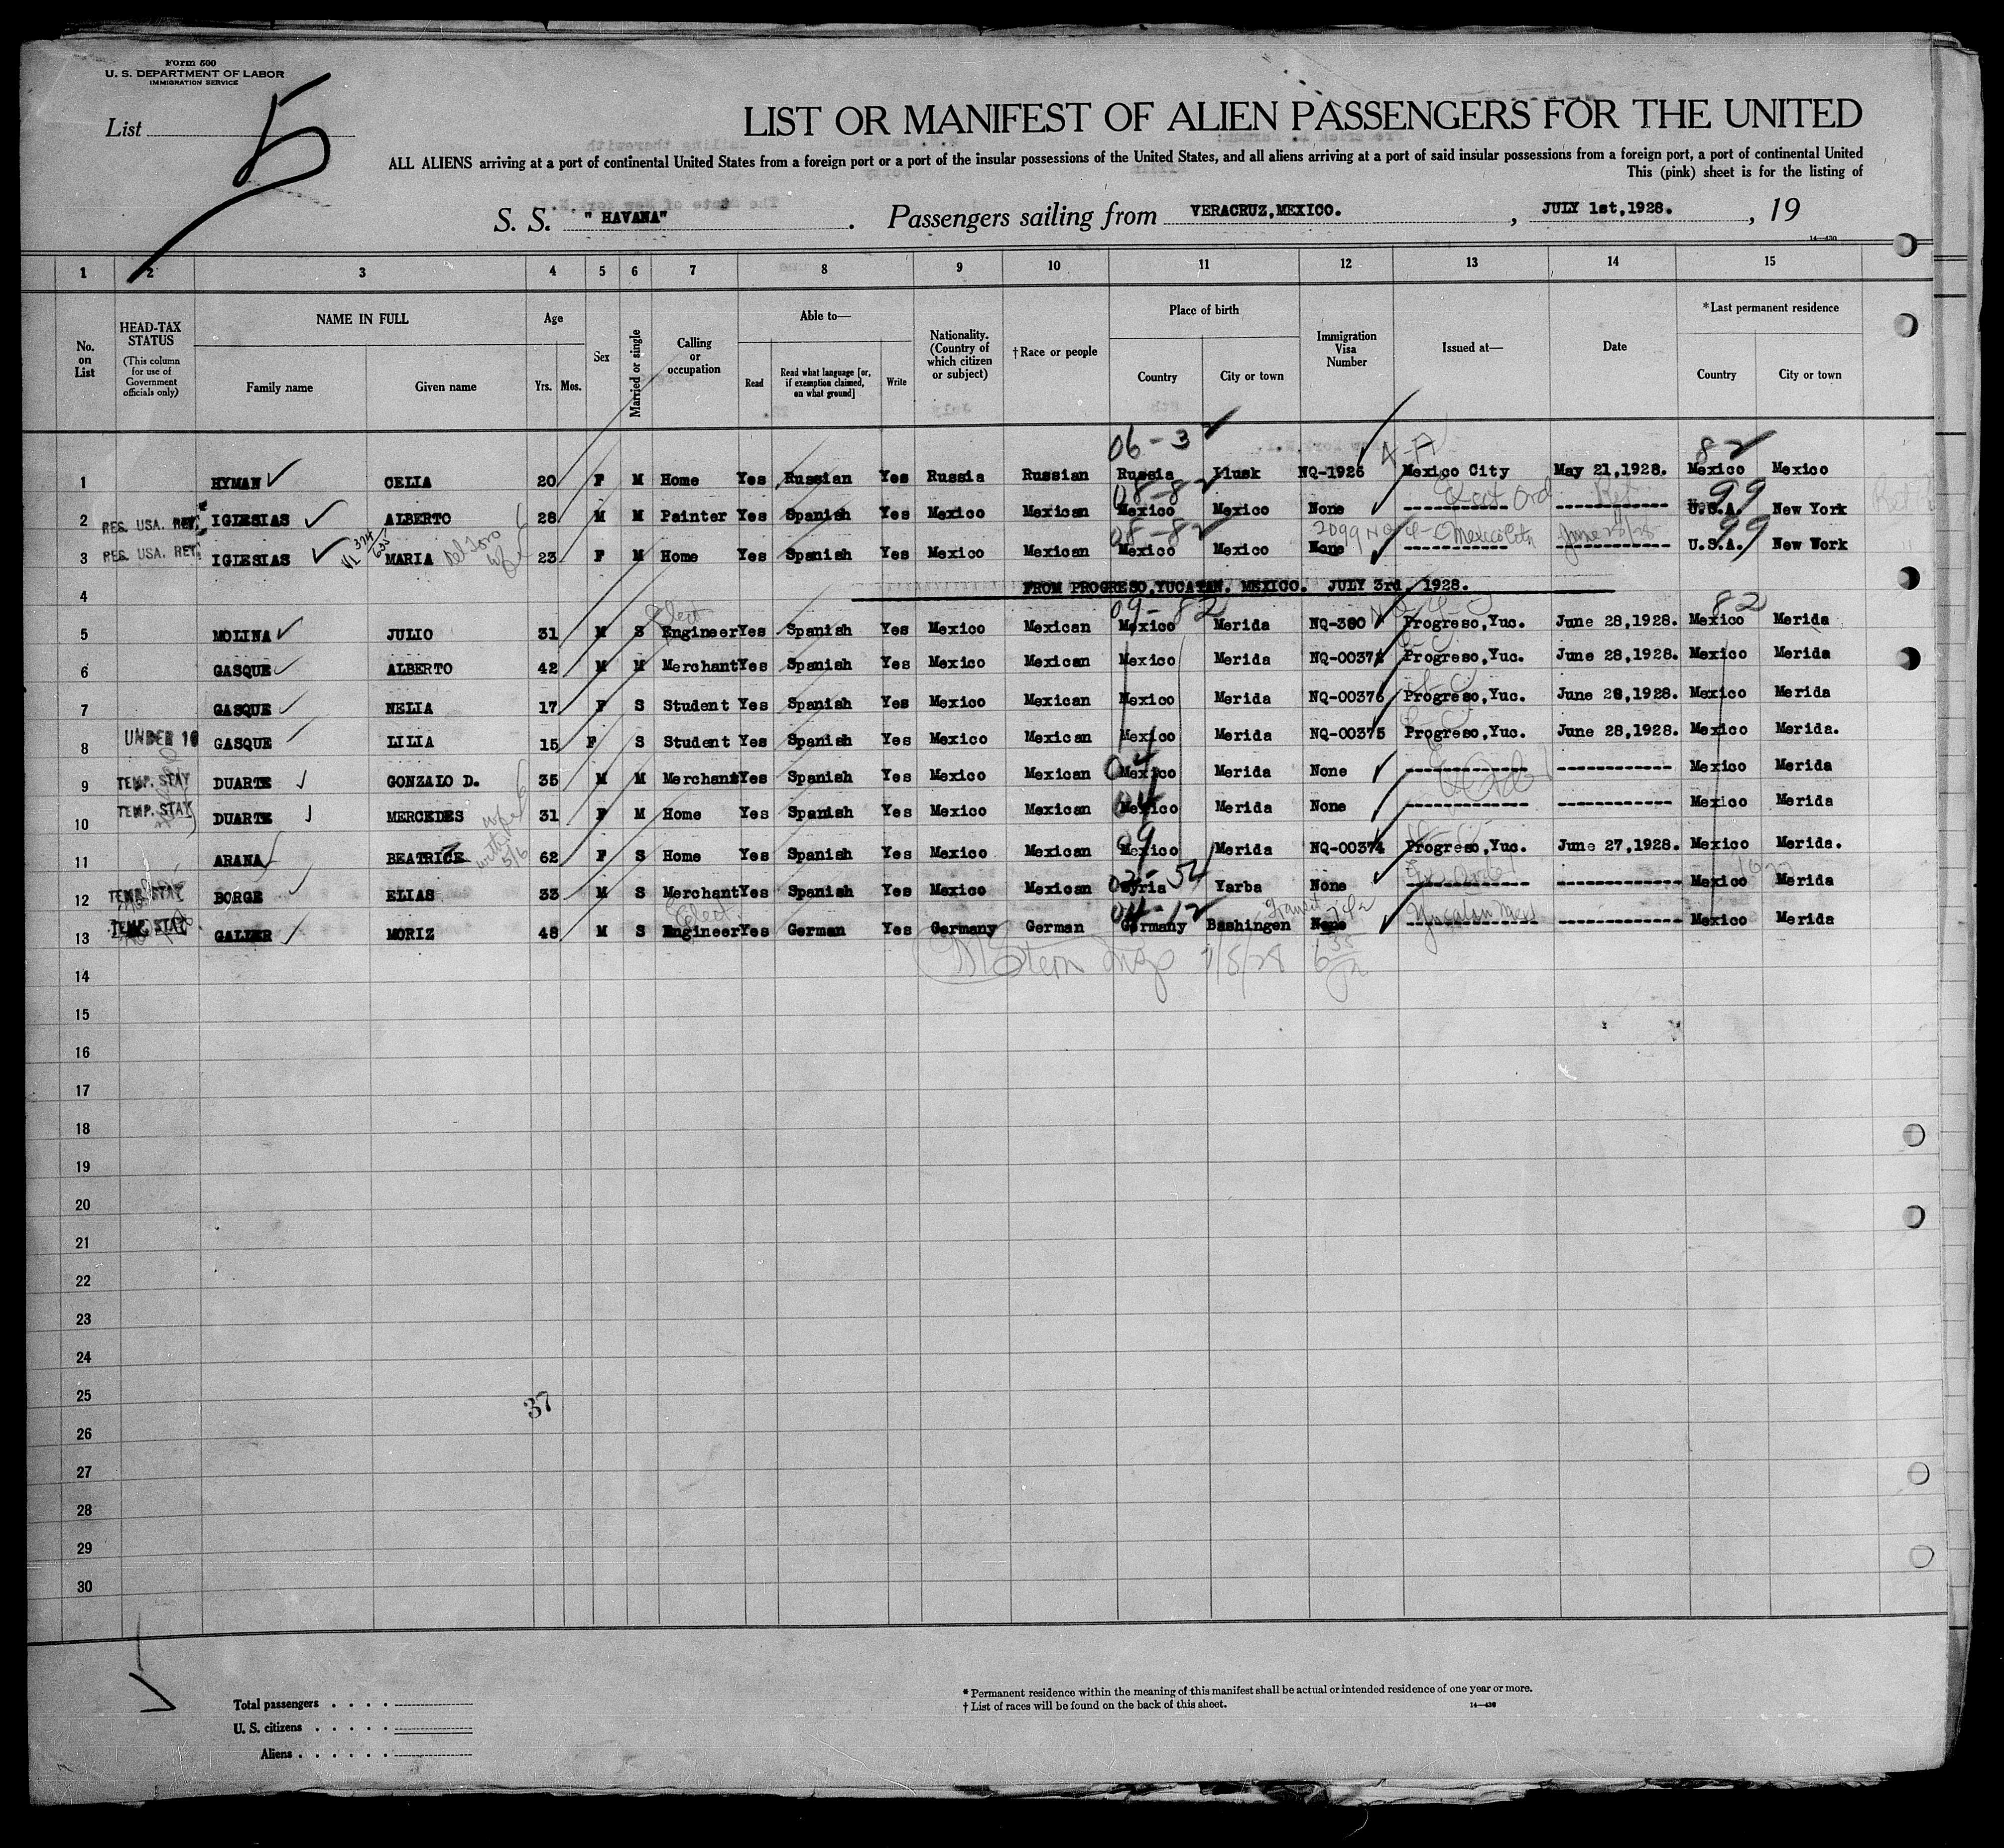 Form 500
U. S. DEPARTMENT OF LABOR
IMMIGRATION SERVICE
List 5
LIST OR MANIFEST OF ALIEN PASSENGERS FOR THE UNITED
ALL ALIENS arriving at a port of continental United States from a foreign port or a port of the insular possessions of the United States, and all aliens arriving at a port of said insular possessions from a foreign port, a port of continental United
This (pink) sheet is for the listing of
S. S. "HAVANA". Passengers sailing from VERACRUZ,MEXICO. , JULY 1st,1928. , 19
14—430
1 2 3 4 5 6 7 8 9 10 11 12 13 14 15
No. on List
HEAD-TAX STATUS (This column for use of Government officials only)
NAME IN FULL Family name Given name
Age Yrs. Mos.
Sex
Married or single
Calling or occupation
Able to— Read Read what language [or, if exemption claimed, on what ground] Write
Nationality. (Country of which citizen or subject)
†Race or people
Place of birth Country City or town
Immigration Visa Number
Issued at—
Date
*Last permanent residence Country City or town
06-3 4-A 82
1 HYMAN CELIA 20 F M Home Yes Russian Yes Russia Russian Russia Ilusk NQ-1926 Mexico City May 21,1928. Mexico Mexico
08-82 99
2 REG. USA. RET. IGLESIAS ALBERTO 28 M M Painter Yes Spanish Yes Mexico Mexican Mexico Mexico None ---------- ---------- U.S.A. New York
08-82 99
3 REG. USA. RET. IGLESIAS MARIA Del Toro wife 23 F M Home Yes Spanish Yes Mexico Mexican Mexico Mexico None Mexico City June 28/28 U.S.A. New Work
4 FROM PROGRESO,YUCATAN. MEXICO. JULY 3rd, 1928.
09-82 82
5 MOLINA JULIO 31 M S Elect Engineer Yes Spanish Yes Mexico Mexican Mexico Merida NQ-380 Progreso,Yuc. June 28,1928. Mexico Merida
6 GASQUE ALBERTO 42 M M Merchant Yes Spanish Yes Mexico Mexican Mexico Merida NQ-00374 Progreso,Yuc. June 28,1928. Mexico Merida
7 GASQUE NELIA 17 F S Student Yes Spanish Yes Mexico Mexican Mexico Merida NQ-00376 Progreso,Yuc. June 28,1928. Mexico Merida
8 UNDER 16 GASQUE LILIA 15 F S Student Yes Spanish Yes Mexico Mexican Mexico Merida NQ-00375 Progreso,Yuc. June 28,1928. Mexico Merida.
9 TEMP. STAY DUARTE GONZALO D. 35 M M Merchant Yes Spanish Yes Mexico Mexican Mexico Merida None ---------- ---------- Mexico Merida
10 TEMP. STAY DUARTE MERCEDES wife 31 F M Home Yes Spanish Yes Mexico Mexican Mexico Merida None ---------- ---------- Mexico Merida
11 ARANA BEATRICE with 5/6 62 F S Home Yes Spanish Yes Mexico Mexican Mexico Merida NQ-00374 Progreso,Yuc. June 27,1928. Mexico Merida.
12 TEMP. STAY BORGE ELIAS 33 M S Merchant Yes Spanish Yes Mexico Mexican Syria Yarba None ---------- ---------- Mexico Merida
04-12
13 TEMP. STAY GALLER MORIZ 48 M S Elect. Engineer Yes German Yes Germany German Germany Bashingen None ---------- ---------- Mexico Merida
7/8/28
14
15
16
17
18
19
20
21
22
23
24
25
37
26
27
28
29
30
Total passengers
U. S. citizens
Aliens
* Permanent residence within the meaning of this manifest shall be actual or intended residence of one year or more.
† List of races will be found on the back of this sheet.
14—430